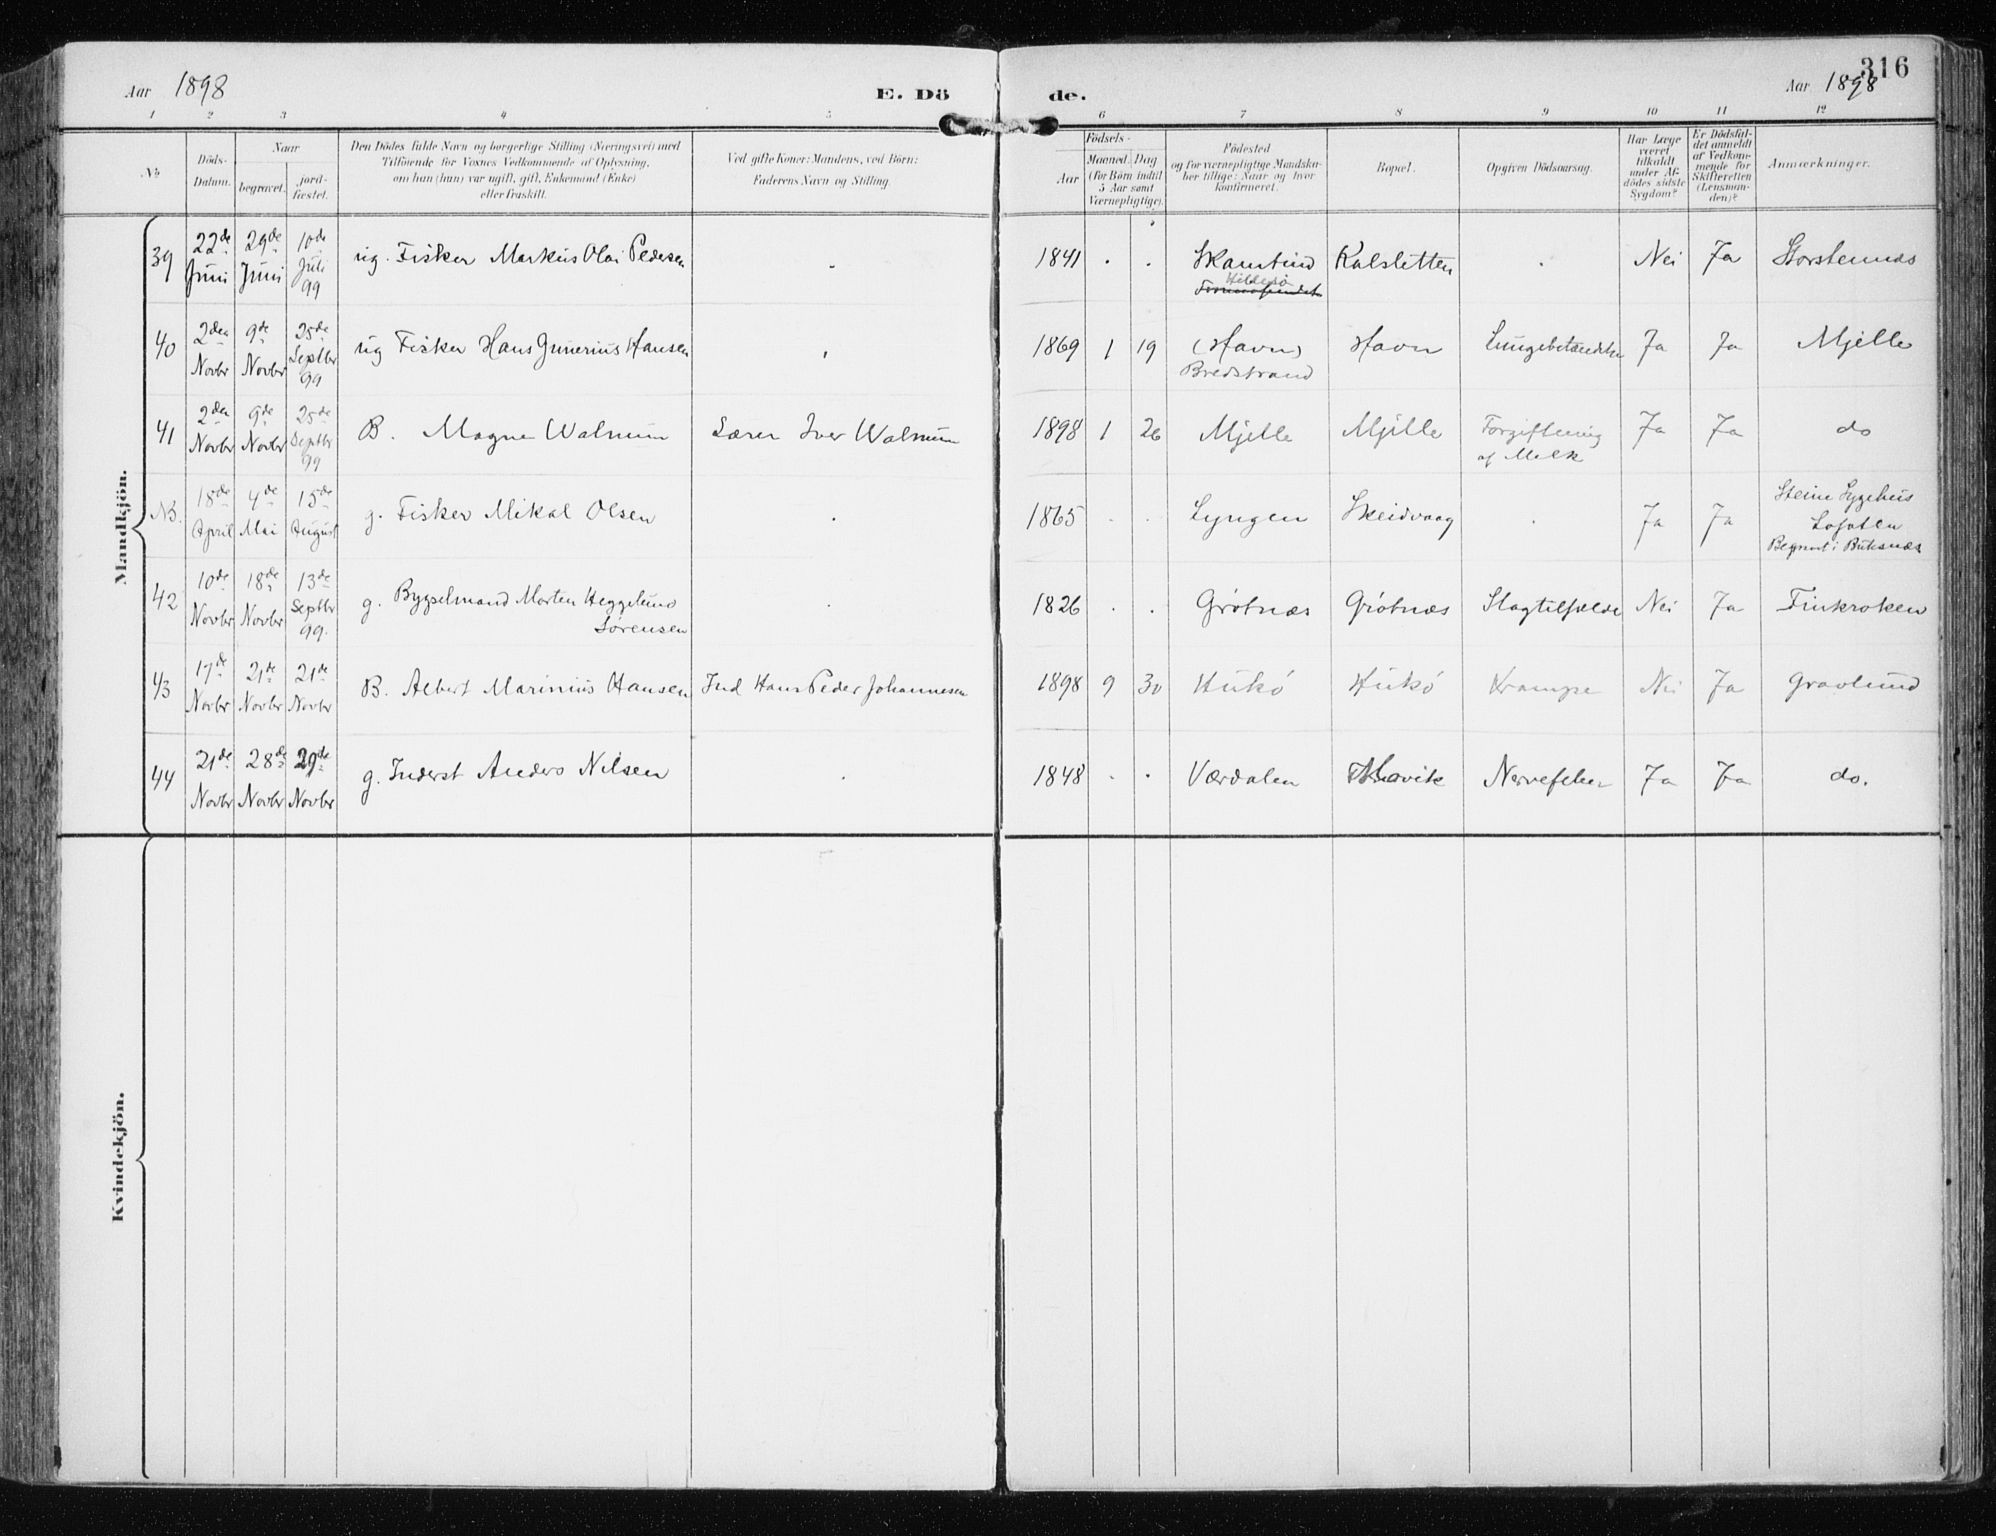 Aar 1898
E. Dö
de.
316
Aar 1898
1 2 3 4 5 6 7 8 9 10 11 12
No
Döds-Datum.
Naar
begravet.
jord-fæstet.
Den Dödes fulde Navn og borgerlige Stilling (Næringsvei) med
Tilföiende for Voxnes Vedkommende af Oplysning,
om han (hun) var ugift, gift, Enkemand (Enke)
eller fraskilt.
Ved gifte Koner: Mandens, ved Börn:
Faderens Navn og Stilling.
Födsels-
Aar
Maaned. Dag
(for Börn indtil
5 Aar samt
Værnepligtige).
Födested
og for værnepligtige Mandska-
ber tillige: Naar og hvor
konfirmeret.
Bopæl.
Opgiven Dödsaarsag.
Har Læge
været
tilkaldt
under Af-
dödes sidste
Sygdom?
Er Dödsfal-
det anmeldt
af Vedkom-
mende for
Skifteretten
(Lensman-
den)?
Anmærkninger.
Mandkjön.
39 22de Juni 29de Juni 10de Juli 99 ug. Fisker Markus Olai Pedersen 1841 Skamtind Hildersø Kalsletten Nei Ja Storstennæs
40 2den Novbr 9de Novbr 25de Septbr 99 ug Fisker Hans Junerius Hansen 1869 1 19 (Havn) Bredstrand Havn Lungebetændelse Ja Ja Mjelle
41 2den Novbr 9de Novbr 25de Septbr 99 B. Magne Walnum Lærer Iver Walnum 1898 1 26 Mjelle Mjelle Forgiftning af Melk Ja Ja do
NB. 18de April 4de Mai 15de August g. Fisker Mikal Olsen 1865 Lyngen Skeidvaag Ja Ja Steine Sygehus Lofoten Begravet i Buksnæs
42 10de Novbr 18de Novbr 13de Septbr 99. g. Bygselmand Morten Heggelund Sørensen 1826 Grötnæs Grötnæs Slagtilfælde Nei Ja Finkroken
43 17de Novbr 21de Novbr 21de Novbr B. Albert Marinius Hansen Ind Hans Peder Johannesen 1898 9 30 Hukö Hukö Krampe Nei Ja Gravlund
44 21de Novbr 28de Novbr 29de Novbr g. Inderst Anders Nilsen 1848 Værdalen Nervefeber Ja Ja do.
Kvindekjön.